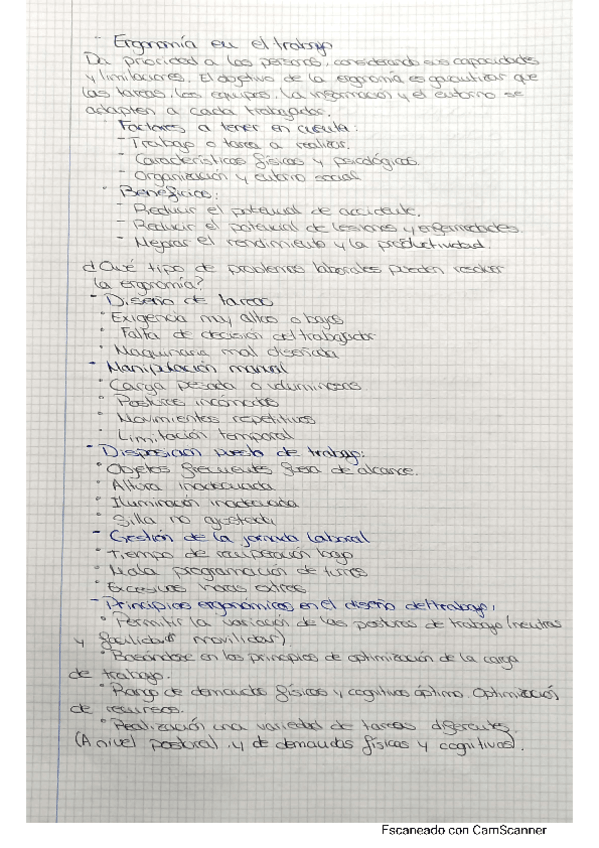 - Ergonomía en el trabajo
Da prioridad a las personas, considerando sus capacidades
y limitaciones. El objetivo de la ergonomía es garantizar que
las tareas, los equipos, la información y el entorno se
adapten a cada trabajador.
Factores a tener en cuenta:
- Trabajo o tarea a realizar.
- Características físicas y psicológicas.
- Organización y entorno social
- Beneficios:
- Reducir el potencial de accidente.
- Reducir el potencial de lesiones y enfermedades.
- Mejorar el rendimiento y la productividad.
¿Qué tipo de problemas laborales pueden resolver
la ergonomía?
- Diseño de tareas
• Exigencia muy altas o bajas
• Falta de decisión del trabajador
• Maquinaria mal diseñada
- Manipulación manual
• Carga pesada o voluminosas.
• Posturas incómodas
• Movimientos repetitivos
• Limitación temporal
- Disposición puesto de trabajo:
• Objetos frecuentes fuera de alcance.
• Altura inadecuada
• Iluminación inadecuada
• Silla no ajustada
- Gestión de la jornada laboral
• Tiempo de recuperación bajo
• Mala programación de turnos
• Excesivas horas extras
- Principios ergonómicos en el diseño del trabajo:
• Permitir la variación de las posturas de trabajo (neutras
y movilidad)
• Basándose en los principios de optimización de la carga
de trabajo.
• Rango de demandas físicas y cognitivas óptimo. Optimización
de recursos.
• Realización una variedad de tareas diferentes.
(A nivel postural y de demandas físicas y cognitivas).
Escaneado con CamScanner